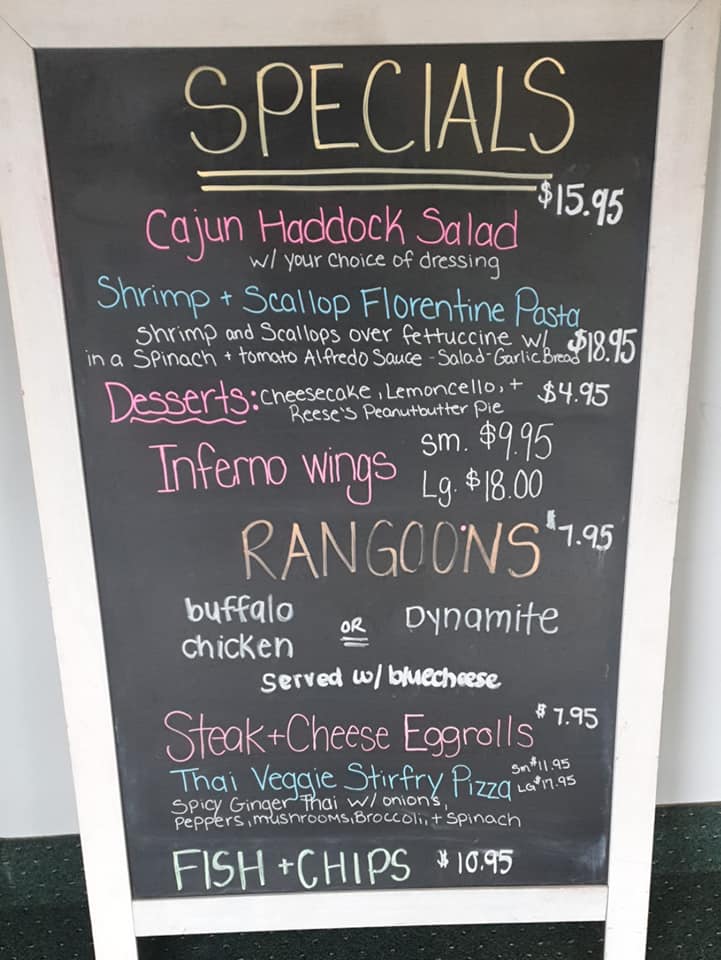 SPECIALS
Cajun Haddock Salad $15.95
w/ your choice of dressing
Shrimp + Scallop Florentine Pasta
Shrimp and Scallops over fettuccine w/ $18.95
in a Spinach + tomato Alfredo Sauce - Salad - Garlic Bread
Desserts: Cheesecake, Lemoncello, + $4.95
Reese's Peanutbutter Pie
Inferno wings sm. $9.95
Lg. $18.00
RANGOONS $7.95
buffalo chicken OR Dynamite
Served w/ bluecheese
Steak + Cheese Eggrolls $7.95
Thai Veggie Stirfry Pizza Sm $11.95
LG $17.95
Spicy Ginger Thai w/ onions,
Peppers, mushrooms, Broccoli, + Spinach
FISH + CHIPS $10.95